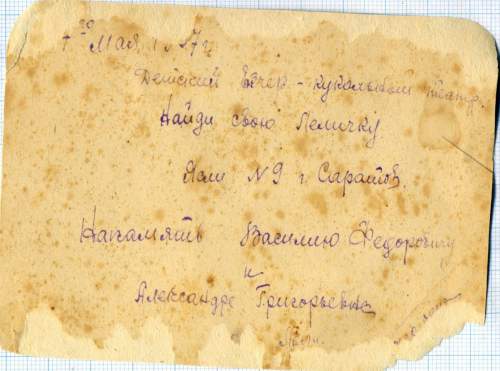 Мая 1 27 г
Детский вечер - кукольный театр.
Найди свою Леличку
Ясли N 9 г Саратов.
На память Василию Федоровичу
и
Александре Григорьевне